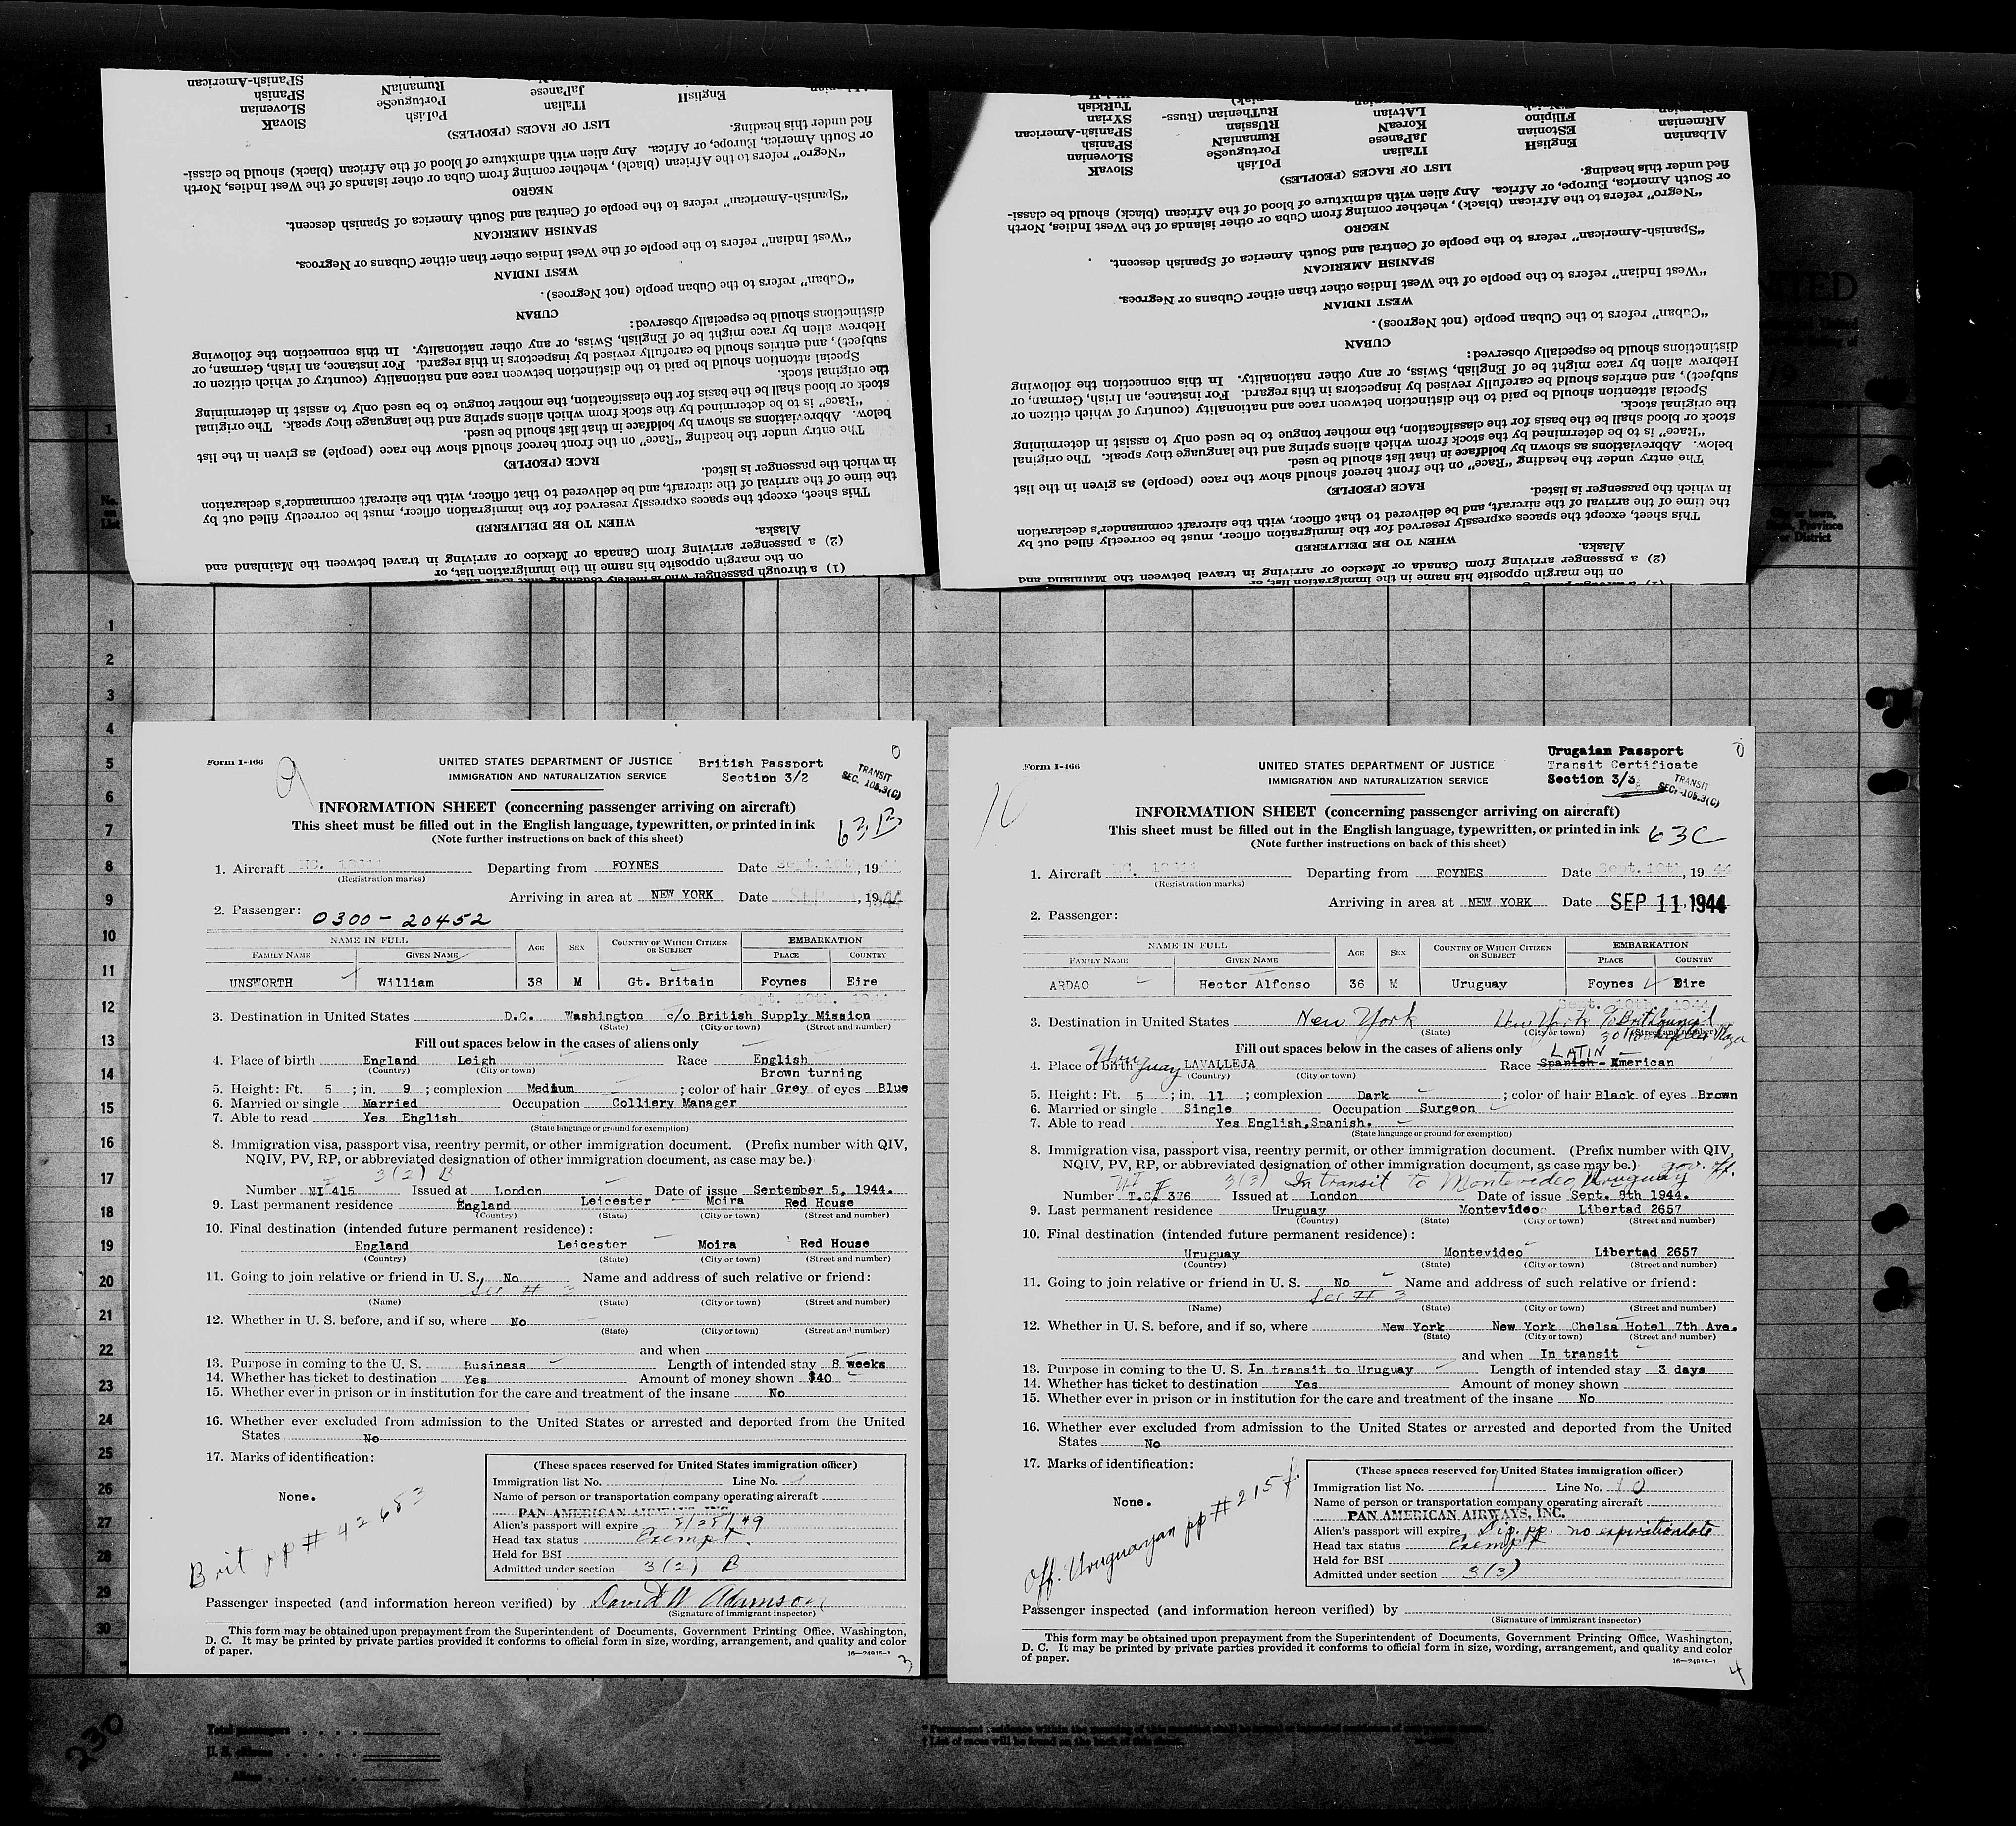 SPanish-American
SPanish
SLovenian
SlovaK
RumaniaN
PortugueSe
PoLish
JaPanese
ITalian
EnglisH
LIST OF RACES (PEOPLES)
fied under this heading.
or South America, Europe, or Africa. Any alien with admixture of blood of the African (black) should be classi-
"Negro" refers to the African (black), whether coming from Cuba or other islands of the West Indies, North
NEGRO
"Spanish-American" refers to the people of Central and South America of Spanish descent.
SPANISH AMERICAN
"West Indian" refers to the people of the West Indies other than either Cubans or Negroes.
WEST INDIAN
"Cuban" refers to the Cuban people (not Negroes).
CUBAN
distinctions should be especially observed:
Hebrew alien by race might be of English, Swiss, or any other nationality. In this connection the following
subject), and entries should be carefully revised by inspectors in this regard. For instance, an Irish, German, or
Special attention should be paid to the distinction between race and nationality (country of which citizen or
the original stock.
stock or blood shall be the basis for the classification, the mother tongue to be used only to assist in determining
"Race" is to be determined by the stock from which aliens spring and the language they speak. The original
below. Abbreviations as shown by boldface in that list should be used.
The entry under the heading "Race" on the front hereof should show the race (people) as given in the list
RACE (PEOPLE)
in which the passenger is listed.
the time of the arrival of the aircraft, and be delivered to that officer, with the aircraft commander's declaration
This sheet, except the spaces expressly reserved for the immigration officer, must be correctly filled out by
WHEN TO BE DELIVERED
Alaska.
(2) a passenger arriving from Canada or Mexico or arriving in travel between the Mainland and
on the margin opposite his name in the immigration list, or
TuRkish
SYrian
SPanish-American
SPanish
SLovenian
SlovaK
RuThenian (Russ-
RUssian
RumaniaN
PortugueSe
PoLish
LAtvian
KoreaN
JaPanese
ITalian
FIlipino
EStonian
EnglisH
ARmenian
ALbanian
LIST OF RACES (PEOPLES)
fied under this heading.
or South America, Europe, or Africa. Any alien with admixture of blood of the African (black) should be classi-
"Negro" refers to the African (black), whether coming from Cuba or other islands of the West Indies, North
NEGRO
"Spanish-American" refers to the people of Central and South America of Spanish descent.
SPANISH AMERICAN
"West Indian" refers to the people of the West Indies other than either Cubans or Negroes.
WEST INDIAN
"Cuban" refers to the Cuban people (not Negroes).
CUBAN
distinctions should be especially observed:
Hebrew alien by race might be of English, Swiss, or any other nationality. In this connection the following
subject), and entries should be carefully revised by inspectors in this regard. For instance, an Irish, German, or
Special attention should be paid to the distinction between race and nationality (country of which citizen or
the original stock.
stock or blood shall be the basis for the classification, the mother tongue to be used only to assist in determining
"Race" is to be determined by the stock from which aliens spring and the language they speak. The original
below. Abbreviations as shown by boldface in that list should be used.
The entry under the heading "Race" on the front hereof should show the race (people) as given in the list
RACE (PEOPLE)
in which the passenger is listed.
the time of the arrival of the aircraft, and be delivered to that officer, with the aircraft commander's declaration
This sheet, except the spaces expressly reserved for the immigration officer, must be correctly filled out by
WHEN TO BE DELIVERED
Alaska.
(2) a passenger arriving from Canada or Mexico or arriving in travel between the Mainland and
on the margin opposite his name in the immigration list, or
Form I-466
9
UNITED STATES DEPARTMENT OF JUSTICE
IMMIGRATION AND NATURALIZATION SERVICE
British Passport
Section 3/2
TRANSIT
SEC. 105.3(C)
INFORMATION SHEET (concerning passenger arriving on aircraft)
This sheet must be filled out in the English language, typewritten, or printed in ink
(Note further instructions on back of this sheet)
63B
1. Aircraft NC. Departing from FOYNES Date Sept. 10th, 1944
(Registration marks)
Arriving in area at NEW YORK Date SEP 1944
2. Passenger: 0300-20452
NAME IN FULL AGE SEX COUNTRY OF WHICH CITIZEN OR SUBJECT EMBARKATION
FAMILY NAME GIVEN NAME PLACE COUNTRY
UNSWORTH William 38 M Gt. Britain Foynes Eire
Sept. 10th. 1944
3. Destination in United States D.C. Washington c/o British Supply Mission
(State) (City or town) (Street and number)
Fill out spaces below in the cases of aliens only
4. Place of birth England Leigh Race English
(Country) (City or town) Brown turning
5. Height: Ft. 5; in. 9; complexion Medium; color of hair Grey of eyes Blue
6. Married or single Married Occupation Colliery Manager
7. Able to read Yes English
(State language or ground for exemption)
8. Immigration visa, passport visa, reentry permit, or other immigration document. (Prefix number with QIV,
NQIV, PV, RP, or abbreviated designation of other immigration document, as case may be.)
3(2) B
Number NI 415 Issued at London Date of issue September 5, 1944.
9. Last permanent residence England Leicester Moira Red House
(Country) (State) (City or town) (Street and number)
10. Final destination (intended future permanent residence):
England Leicester Moira Red House
(Country) (State) (City or town) (Street and number)
11. Going to join relative or friend in U. S. No Name and address of such relative or friend:
See # 3
(Name) (State) (City or town) (Street and number)
12. Whether in U. S. before, and if so, where No
(State) (City or town) (Street and number)
and when
13. Purpose in coming to the U. S. Business Length of intended stay 8 weeks
14. Whether has ticket to destination Yes Amount of money shown $40
15. Whether ever in prison or in institution for the care and treatment of the insane No
16. Whether ever excluded from admission to the United States or arrested and deported from the United
States No
17. Marks of identification:
None.
Brit pp # 42683
(These spaces reserved for United States immigration officer)
Immigration list No. 1 Line No. 9
Name of person or transportation company operating aircraft
PAN AMERICAN AIRWAYS, INC.
Alien's passport will expire
Head tax status Exempt.
Held for BSI
Admitted under section 3(2) B
Passenger inspected (and information hereon verified) by David W Adamson
(Signature of immigrant inspector)
This form may be obtained upon prepayment from the Superintendent of Documents, Government Printing Office, Washington,
D. C. It may be printed by private parties provided it conforms to official form in size, wording, arrangement, and quality and color
of paper.
16—24915-1
3
Form I-466
10
UNITED STATES DEPARTMENT OF JUSTICE
IMMIGRATION AND NATURALIZATION SERVICE
Urugaian Passport
Transit Certificate
Section 3/3
TRANSIT
SEC. 105.3(C)
INFORMATION SHEET (concerning passenger arriving on aircraft)
This sheet must be filled out in the English language, typewritten, or printed in ink
(Note further instructions on back of this sheet)
63C
1. Aircraft NC. Departing from FOYNES Date Sept. 10th, 1944
(Registration marks)
Arriving in area at NEW YORK Date SEP 11 1944
2. Passenger:
NAME IN FULL AGE SEX COUNTRY OF WHICH CITIZEN OR SUBJECT EMBARKATION
FAMILY NAME GIVEN NAME PLACE COUNTRY
ARDAO Hector Alfonso 36 M Uruguay Foynes Eire
Sept. 10th. 1944
3. Destination in United States New York New York % Brit Council
(State) (City or town) (Street and number) 30 Rockefeller Plaza
Fill out spaces below in the cases of aliens only
4. Place of birth Uruguay LAVALLEJA Race LATIN Spanish - American
(Country) (City or town)
5. Height: Ft. 5; in. 11; complexion Dark; color of hair Black of eyes Brown
6. Married or single Single Occupation Surgeon
7. Able to read Yes English, Spanish.
(State language or ground for exemption)
8. Immigration visa, passport visa, reentry permit, or other immigration document. (Prefix number with QIV,
NQIV, PV, RP, or abbreviated designation of other immigration document, as case may be.)
3(3) In transit to Montevideo, Uruguay
Number T.C. 376 Issued at London Date of issue Sept. 8th 1944.
9. Last permanent residence Uruguay Montevideo Libertad 2657
(Country) (State) (City or town) (Street and number)
10. Final destination (intended future permanent residence):
Uruguay Montevideo Libertad 2657
(Country) (State) (City or town) (Street and number)
11. Going to join relative or friend in U. S. No Name and address of such relative or friend:
See # 3
(Name) (State) (City or town) (Street and number)
12. Whether in U. S. before, and if so, where New York New York Chelsa Hotel 7th Ave.
(State) (City or town) (Street and number)
and when In transit
13. Purpose in coming to the U. S. In transit to Uruguay Length of intended stay 3 days
14. Whether has ticket to destination Yes Amount of money shown
15. Whether ever in prison or in institution for the care and treatment of the insane No
16. Whether ever excluded from admission to the United States or arrested and deported from the United
States No
17. Marks of identification:
None.
Off. Uruguayan pp #
(These spaces reserved for United States immigration officer)
Immigration list No. 1 Line No. 10
Name of person or transportation company operating aircraft
PAN AMERICAN AIRWAYS, INC.
Alien's passport will expire Dip. pp. no expiration date
Head tax status Exempt
Held for BSI
Admitted under section 3(3)
Passenger inspected (and information hereon verified) by
(Signature of immigrant inspector)
This form may be obtained upon prepayment from the Superintendent of Documents, Government Printing Office, Washington,
D. C. It may be printed by private parties provided it conforms to official form in size, wording, arrangement, and quality and color
of paper.
16—24915-1
4
1
2
3
4
5
6
7
8
9
10
11
12
13
14
15
16
17
18
19
20
21
22
23
24
25
26
27
28
29
30
230
Total passengers
U. S. citizens
Aliens
† List of races will be found on the back of this sheet.